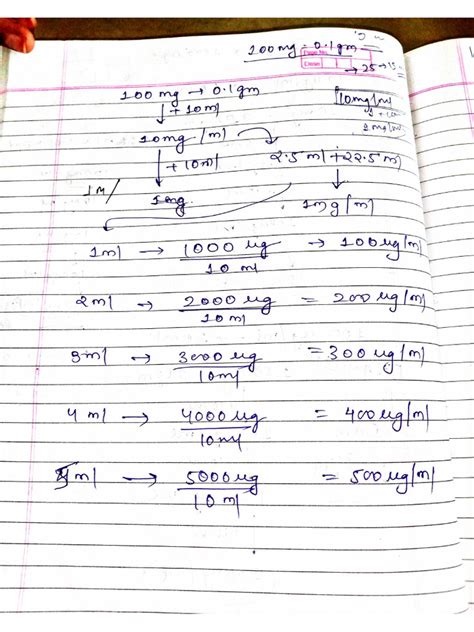 100mg - 0.1gm
Page No.
Date
→ 25 →
100 mg → 0.1gm
↓ + 10ml
10mg/ml
1 + 10
1mg/ml
10mg/ml
↓ + 10ml
2.5ml + 22.5ml
↓
1ml
1mg
1mg/ml
1ml → 1000 ug / 10 ml → 100ug/ml
2ml → 2000 ug / 10ml = 200 ug/ml
3ml → 3000 ug / 10ml = 300 ug/ml
4 ml → 4000 ug / 10ml = 400ug/ml
5ml → 5000ug / 10 ml = 500ug/ml